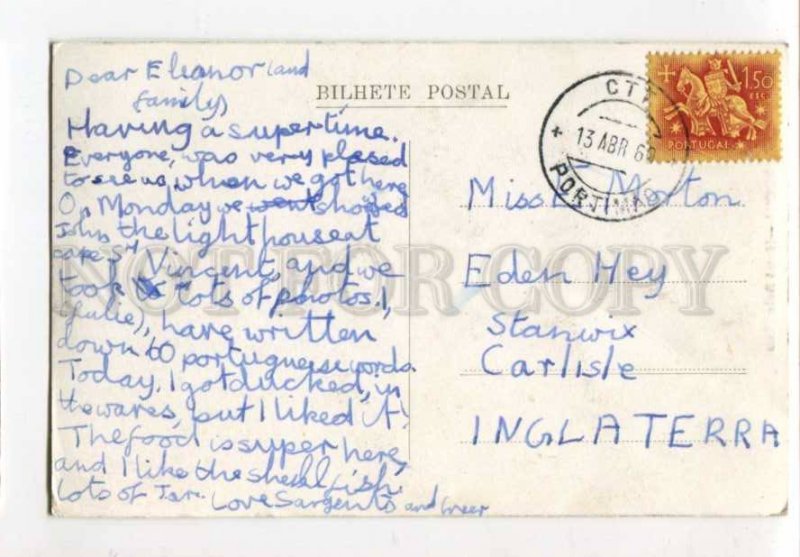 Dear Eleanor (and
family)
Having a super time.
Everyone, was very plesed
to see us, when we got here
On Monday we went showed
John the light house at
cape St Vincent, and we
took lots of photos. I,
(Julie), have written
down 60 portuguese words.
Today, I got ducked, in
the waves, but I liked it!
The food is super here,
and I like the shell fish.
Lots of
Love Sargents and
BILHETE POSTAL
CTT
13 ABR 6
PORTIMAO
1$50
ESC
PORTUGAL
Miss E. Morton
Eden Hey
Stanwix
Carlisle
INGLATERRA
NOT FOR COPY